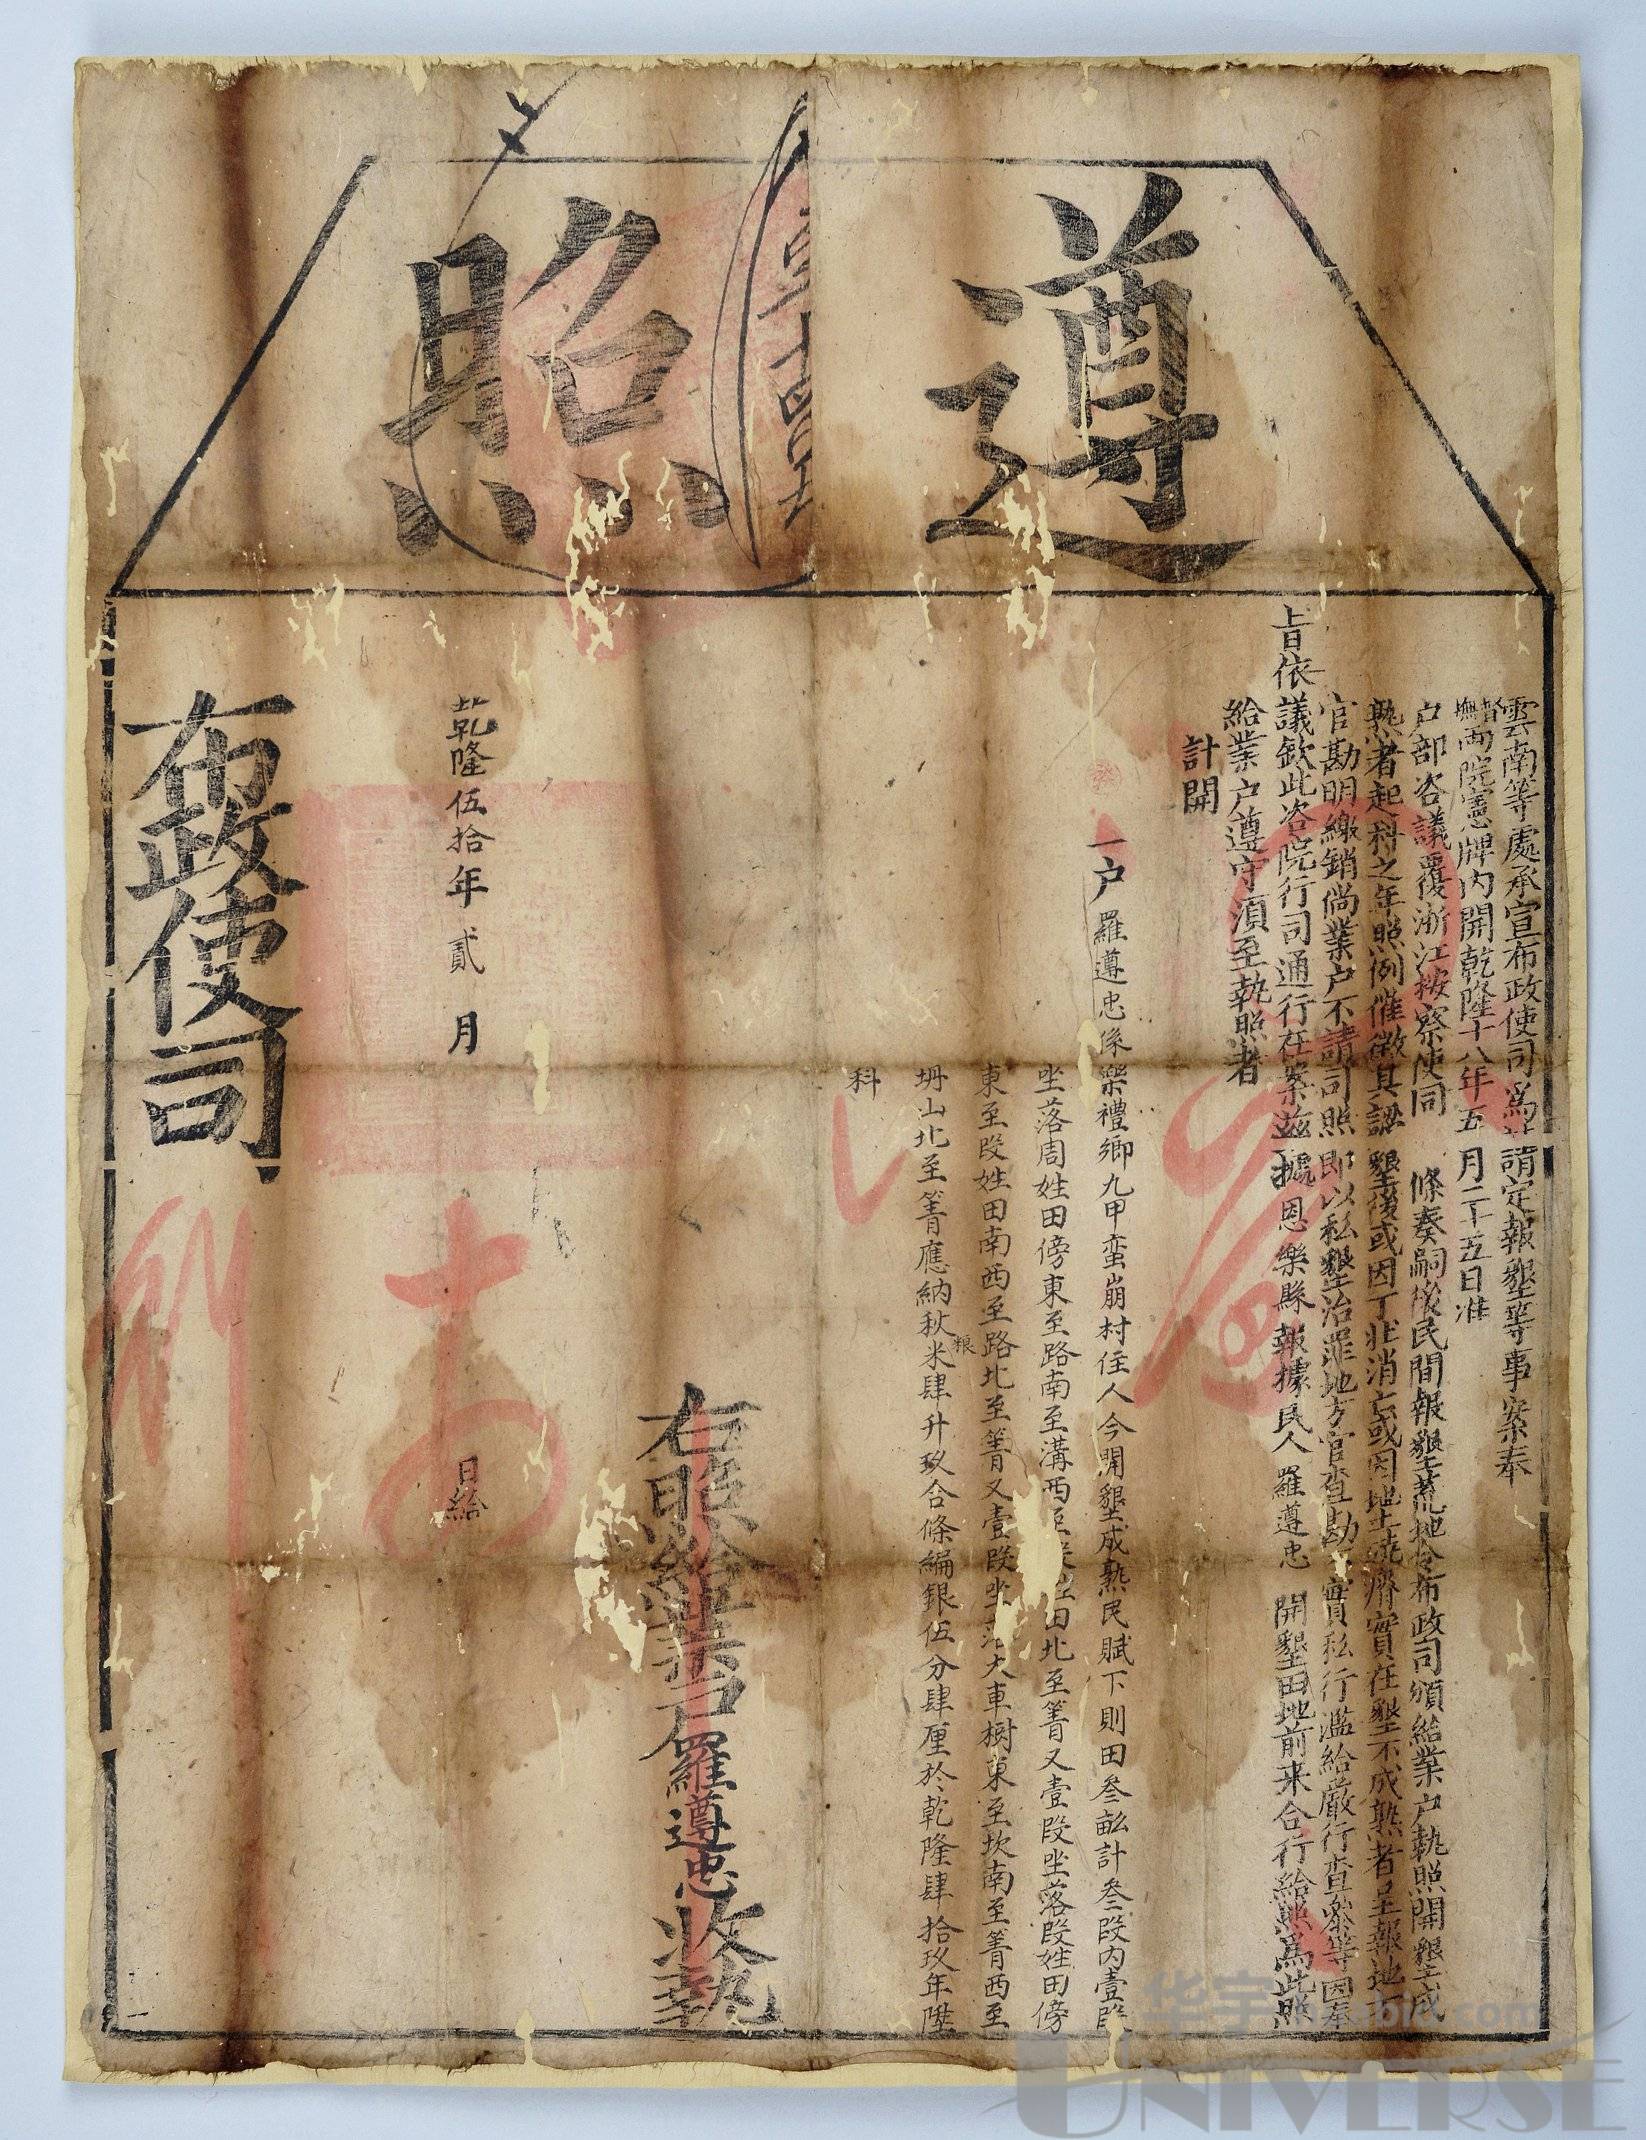 遵照
雲南等處承宣布政使司為請定報墾等事案奉
督撫兩院憲牌內開乾隆十八年五月二十五日准
户部咨議覆浙江按察使同 條奏嗣後民間報墾荒地令布政司頒給業户執照開墾成
熟者起科之年照例催徵其認墾後或因丁壯消亡或因地土磽瘠實在墾不成熟者呈報地方
官勘明繳銷倘業户不請司照即以私墾治罪地方官查勘 實私行濫給嚴行查叅等因奉
旨依議欽此咨院行司通行在案茲據恩樂縣報據民人羅遵忠開墾田地前来合行給照為此照
給業户遵守須至執照者
計開
一户羅遵忠係樂禮鄉九甲蛮崩村住人今開墾成熟民賦下則田叄畝計叄段内壹段
坐落周姓田傍東至路南至溝西至 田北至箐又壹段坐落段姓田傍
東至段姓田南西至路北至箐又壹段坐落大車樹東至坎南至箐西至
坍山北至箐應納秋粮米肆升玖合條編銀伍分肆厘於乾隆肆拾玖年陞
科
右照給業户羅遵忠收執
乾隆伍拾年貳月 日給
布政使司
华宇
UNIVERSE